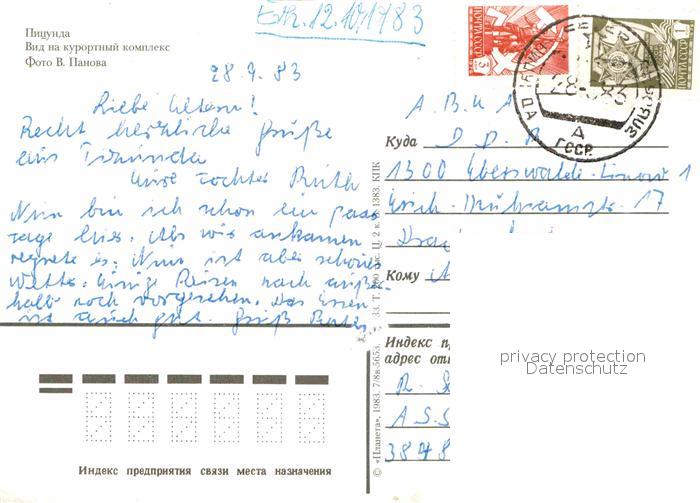 Пицунда
Вид на курортный комплекс
Фото В. Панова
Erh. 12.10.1983
28.9.83
Liebe Eltern!
Recht herzliche Grüße
aus Pizunda
Eure Tochter Ruth
Nun bin ich schon ein paar
Tage hier. Als wir ankamen
regnete es. Nun ist aber schönes
Wetter. Einige Reisen nach außer-
halb noch vorgesehen. Das Essen
ist auch gut. Gruß Ruth
Индекс предприятия связи места назначения
© «Планета», 1983. 7/8в-5653.
КПК
ПОЧТА СССР
ПОЧТА СССР 1
28
83
ГССР
А В И А
Куда D D R
1300 Eberswalde-Finow 1
17
Кому
Индекс п
адрес от
R. S
A S S
3848
privacy protection
Datenschutz